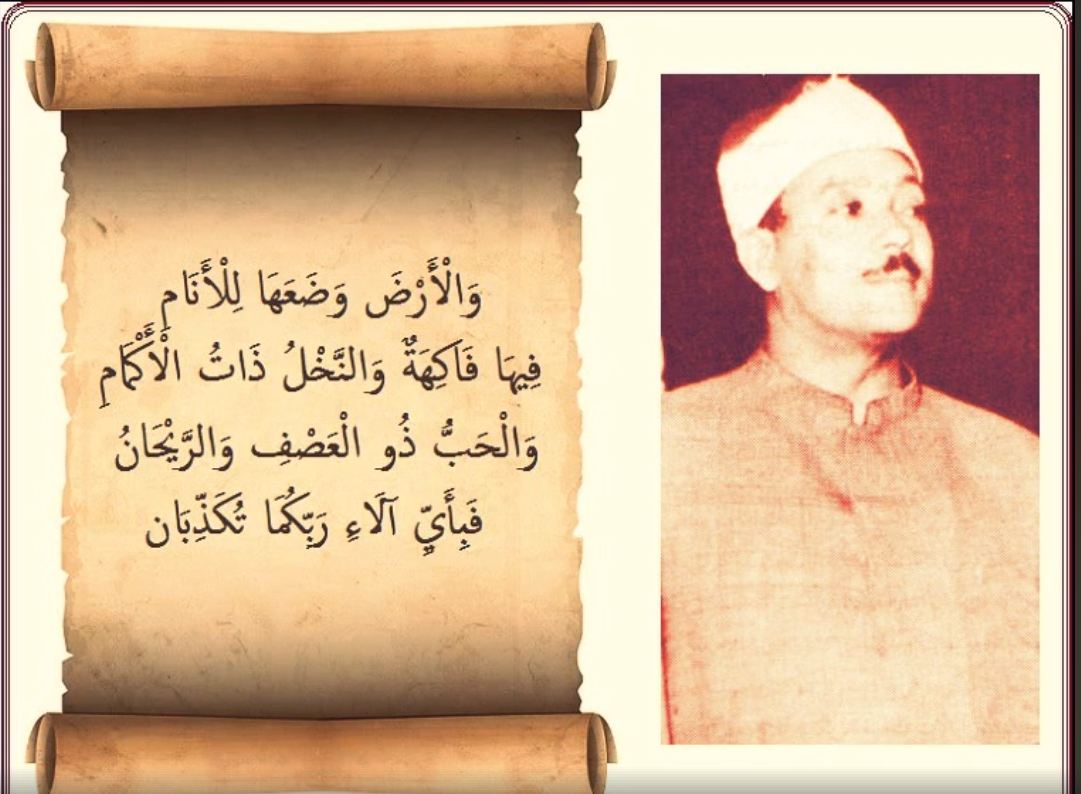 وَالْأَرْضَ وَضَعَهَا لِلْأَنَامِ
فِيهَا فَاكِهَةٌ وَالنَّخْلُ ذَاتُ الْأَكْمَامِ
وَالْحَبُّ ذُو الْعَصْفِ وَالرَّيْحَانُ
فَبِأَيِّ آلَاءِ رَبِّكُمَا تُكَذِّبَان